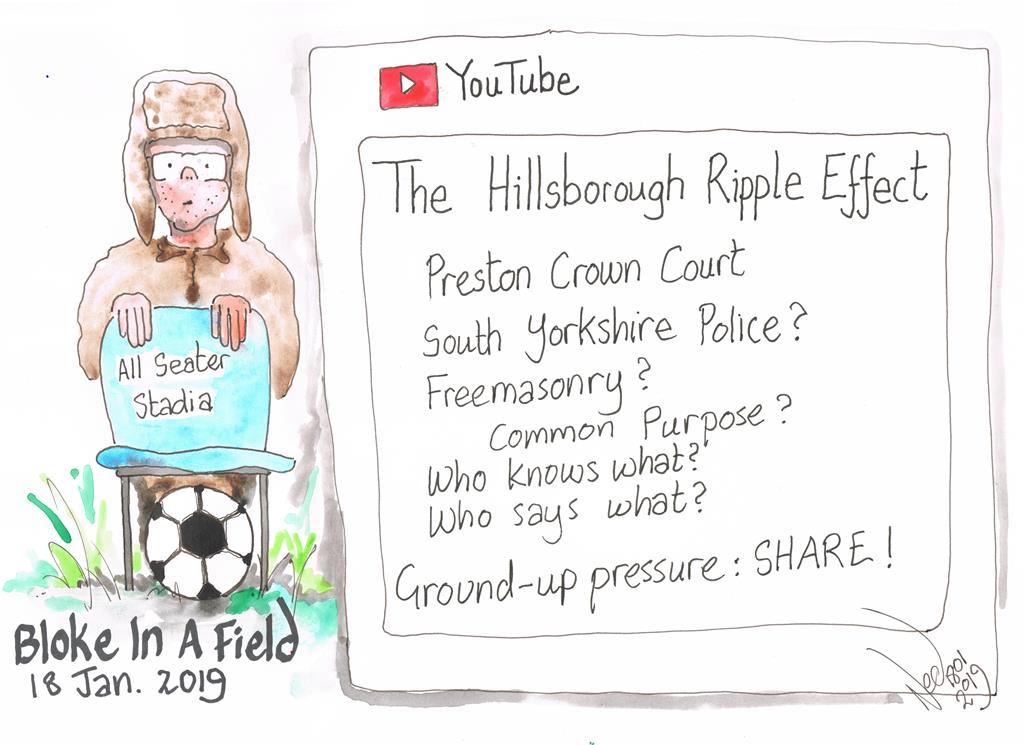 YouTube
The Hillsborough Ripple Effect
Preston Crown Court
South Yorkshire Police?
Freemasonry?
Common Purpose?
Who knows what?
Who says what?
Ground-up pressure: SHARE!
All Seater
Stadia
Bloke In A Field
18 Jan. 2019
2019